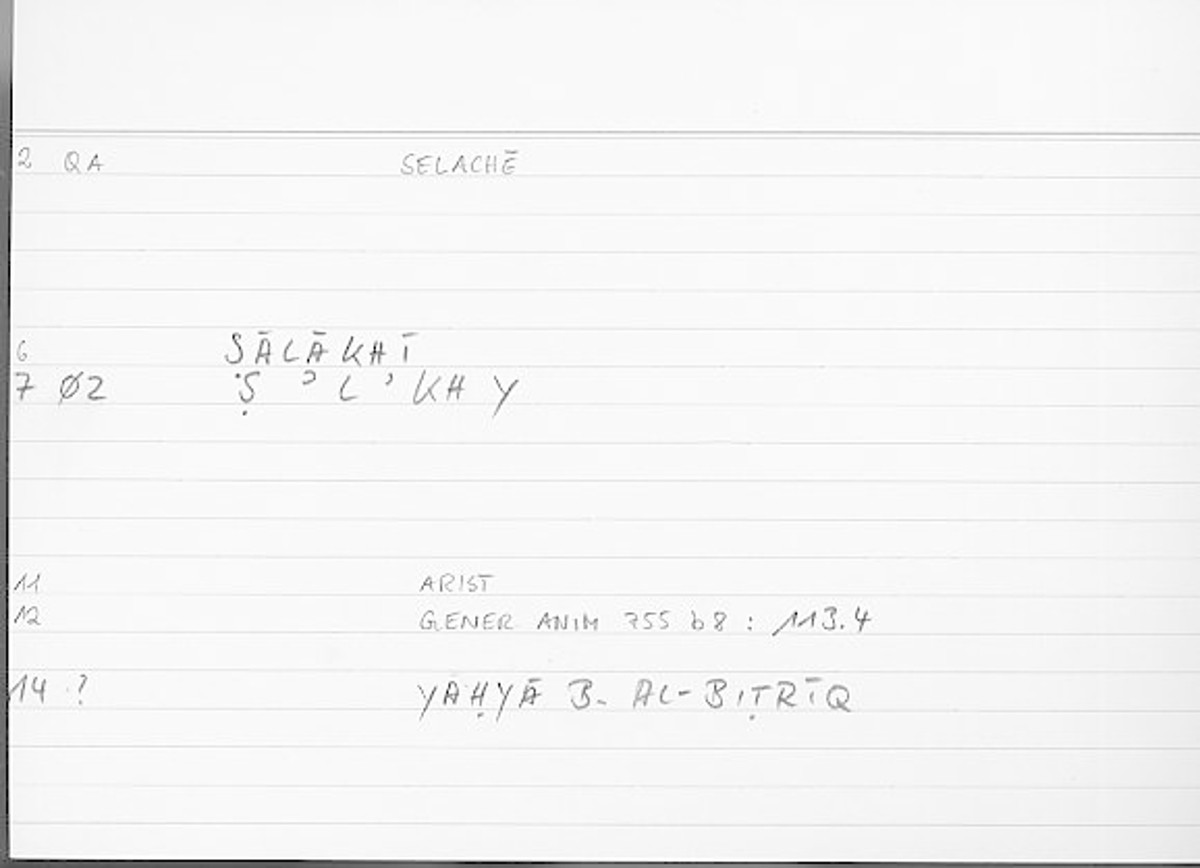 2 QA SELACHĒ
6 ṢĀLĀKHĪ
7 Ø2 Ṣ ʾ L ʾ KH Y
11 ARIST
12 GENER ANIM 755 b8 : 113.4
14 ? YAḤYĀ B. AL-BIṬRĪQ